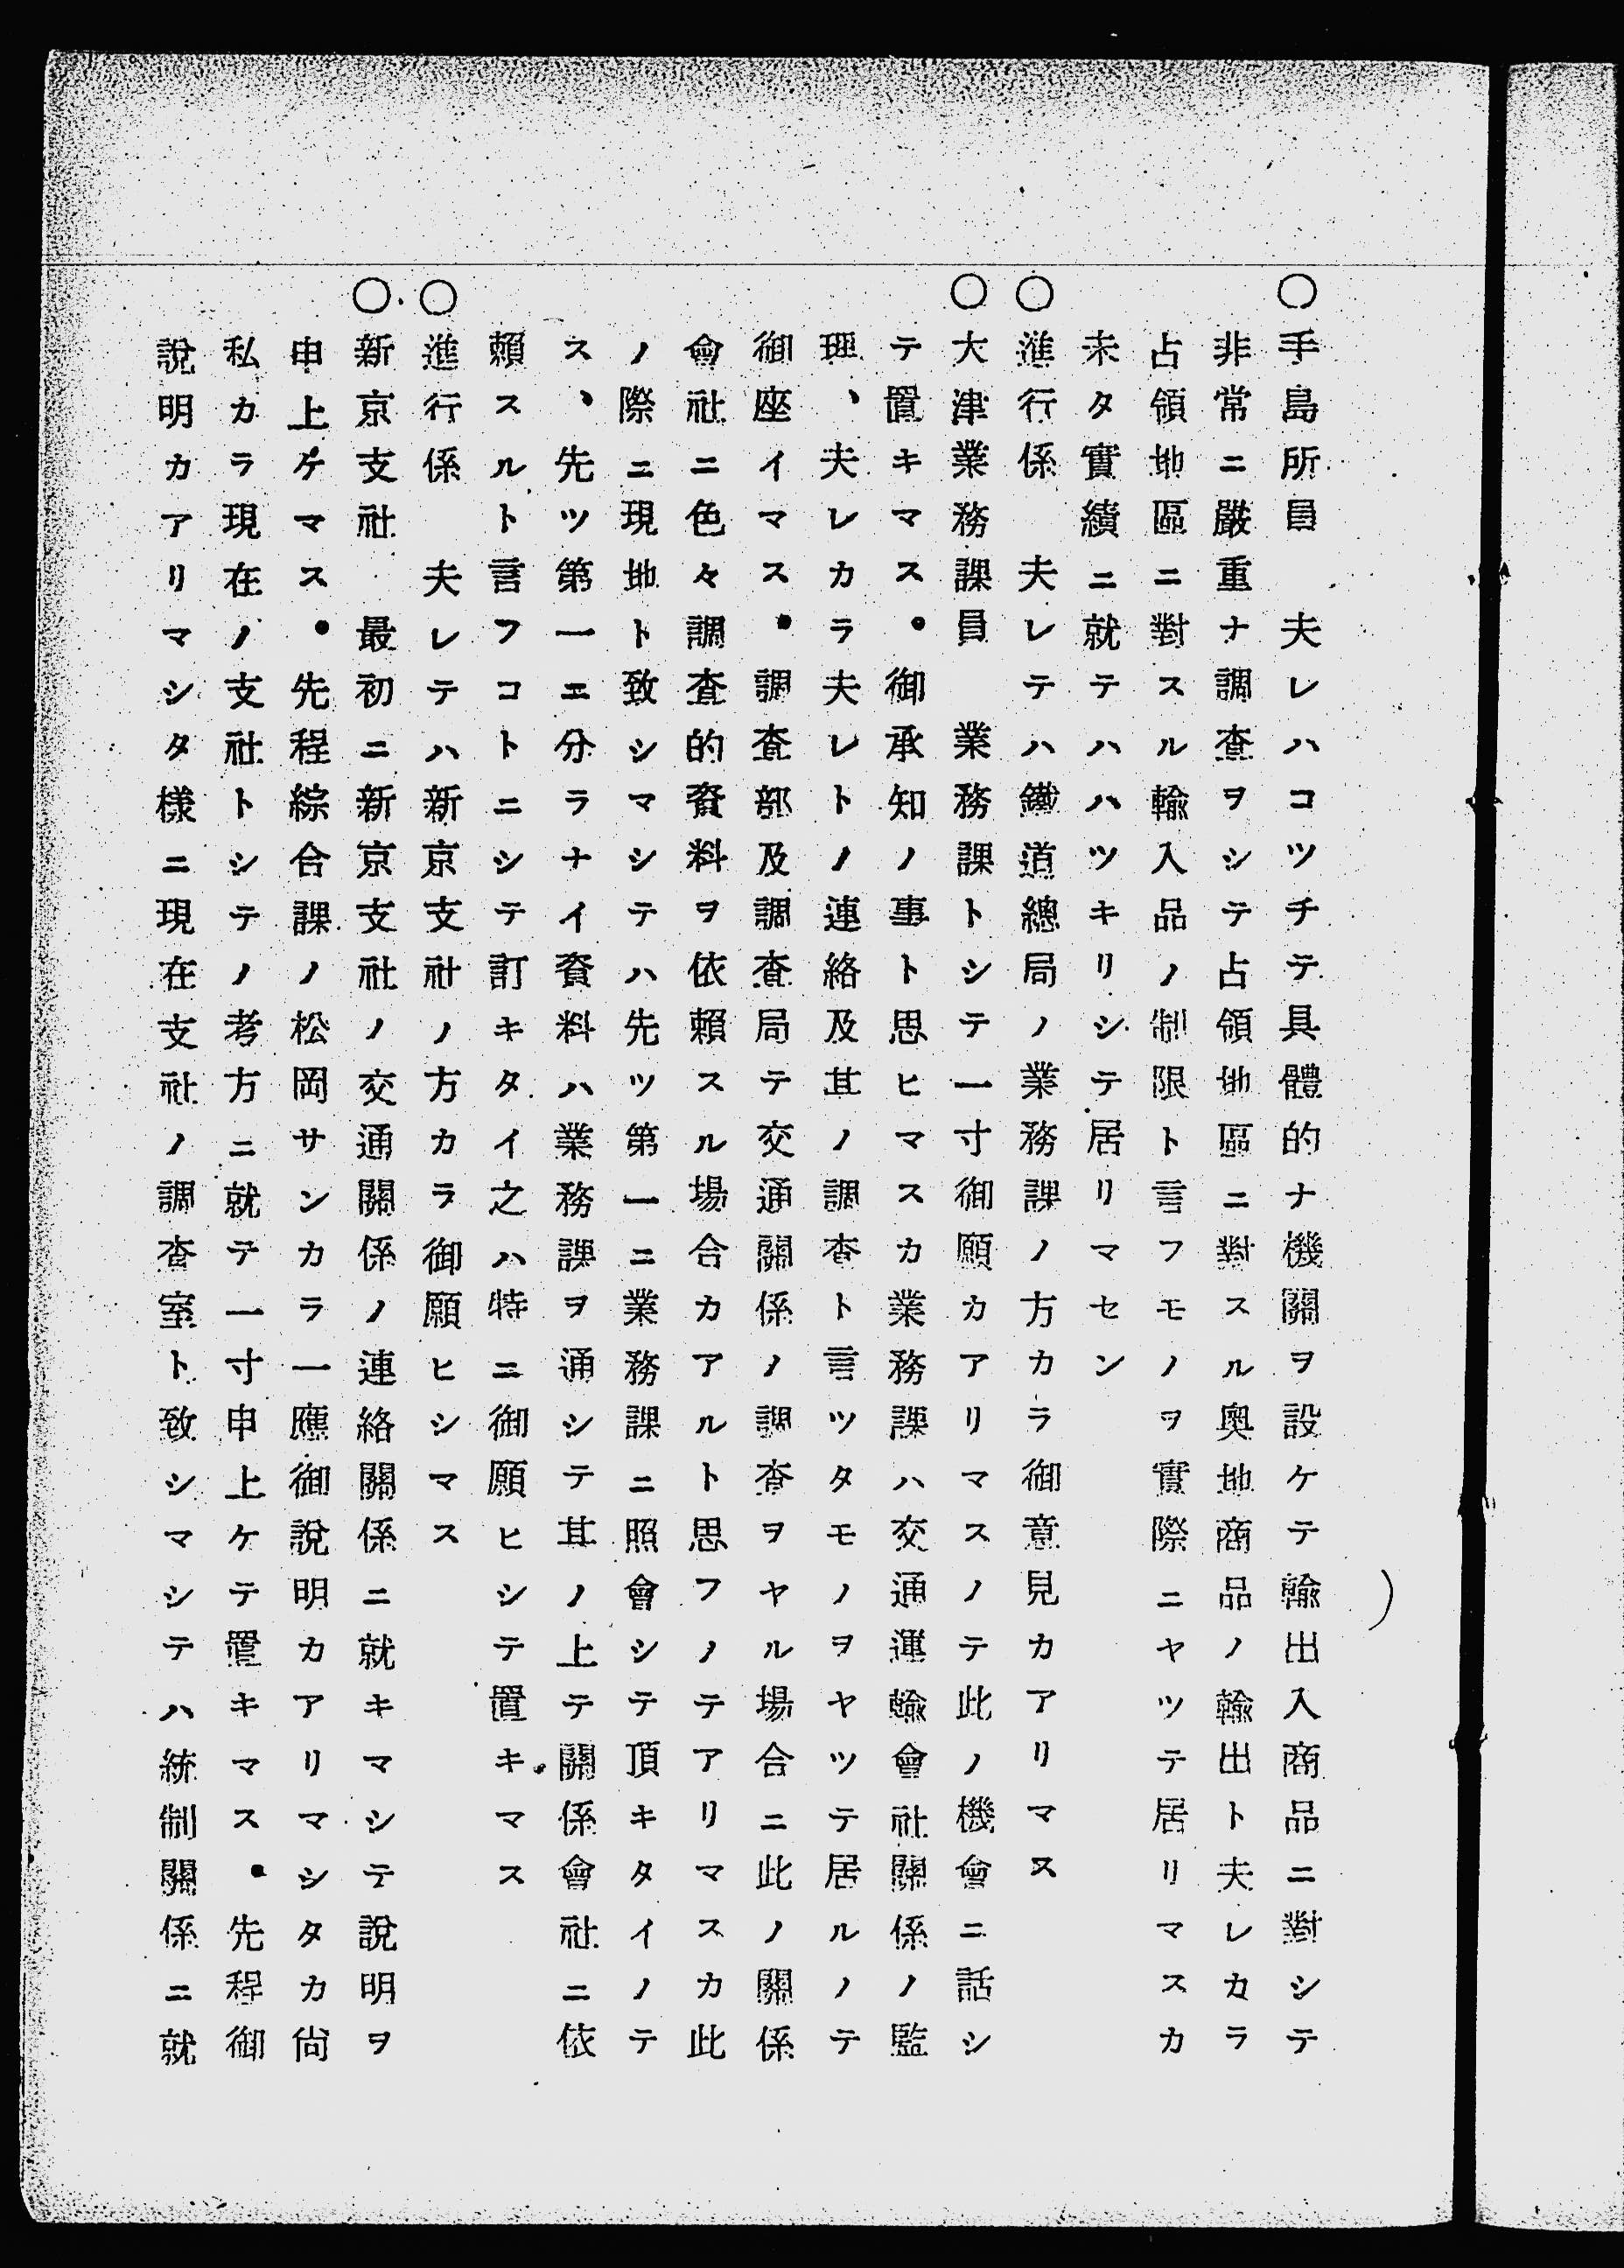 ○手島所員　夫レハコツチテ具體的ナ機關ヲ設ケテ輸出入商品ニ對シテ
非常ニ嚴重ナ調査ヲシテ占領地區ニ對スル奧地商品ノ輸出ト夫レカラ
占領地區ニ對スル輸入品ノ制限ト言フモノヲ實際ニヤツテ居リマスカ
未タ實績ニ就テハハツキリシテ居リマセン
○進行係　夫レテハ鐵道總局ノ業務課ノ方カラ御意見カアリマス
○大津業務課員　業務課トシテ一寸御願カアリマスノテ此ノ機會ニ話シ
テ置キマス。御承知ノ事ト思ヒマスカ業務課ハ交通運輸會社關係ノ監
理、夫レカラ夫レトノ連絡及其ノ調査ト言ツタモノヲヤツテ居ルノテ
御座イマス。調査部及調査局テ交通關係ノ調査ヲヤル場合ニ此ノ關係
會社ニ色々調査的資料ヲ依賴スル場合カアルト思フノテアリマスカ此
ノ際ニ現地ト致シマシテハ先ツ第一ニ業務課ニ照會シテ頂キタイノテ
ス、先ツ第一エ分ラナイ資料ハ業務課ヲ通シテ其ノ上テ關係會社ニ依
賴スルト言フコトニシテ訂キタイ之ハ特ニ御願ヒシテ置キマス
○進行係　夫レテハ新京支社ノ方カラ御願ヒシマス
○新京支社　最初ニ新京支社ノ交通關係ノ連絡關係ニ就キマシテ說明ヲ
申上ケマス。先程綜合課ノ松岡サンカラ一應御說明カアリマシタカ尙
私カラ現在ノ支社トシテノ考方ニ就テ一寸申上ケテ置キマス。先程御
說明カアリマシタ樣ニ現在支社ノ調査室ト致シマシテハ統制關係ニ就